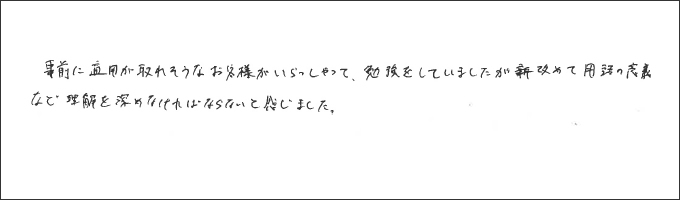 事前に適用が取れそうなお客様がいらっしゃって、勉強をしていましたが新改めて用語の意義
など理解を深めなければならないと感じました。